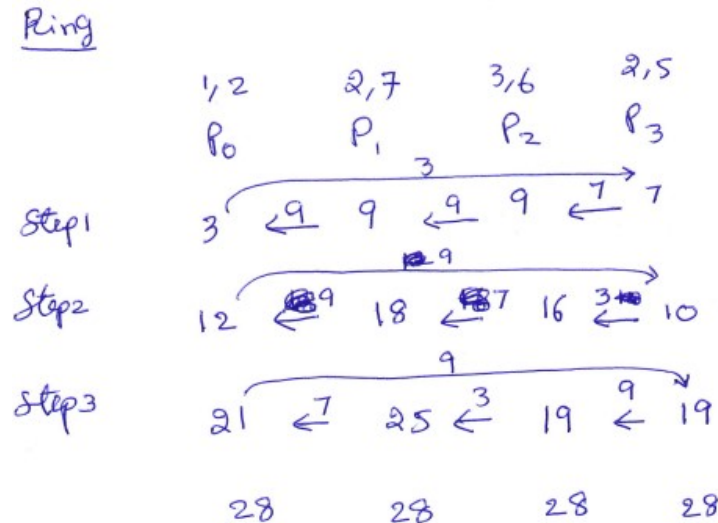 Ring
1,2 2,7 3,6 2,5
P0 P1 P2 P3
3
Step1 3 9 9 9 9 7 7
9
Step2 12 9 18 7 16 3 10
9
Step3 21 7 25 3 19 9 19
28 28 28 28